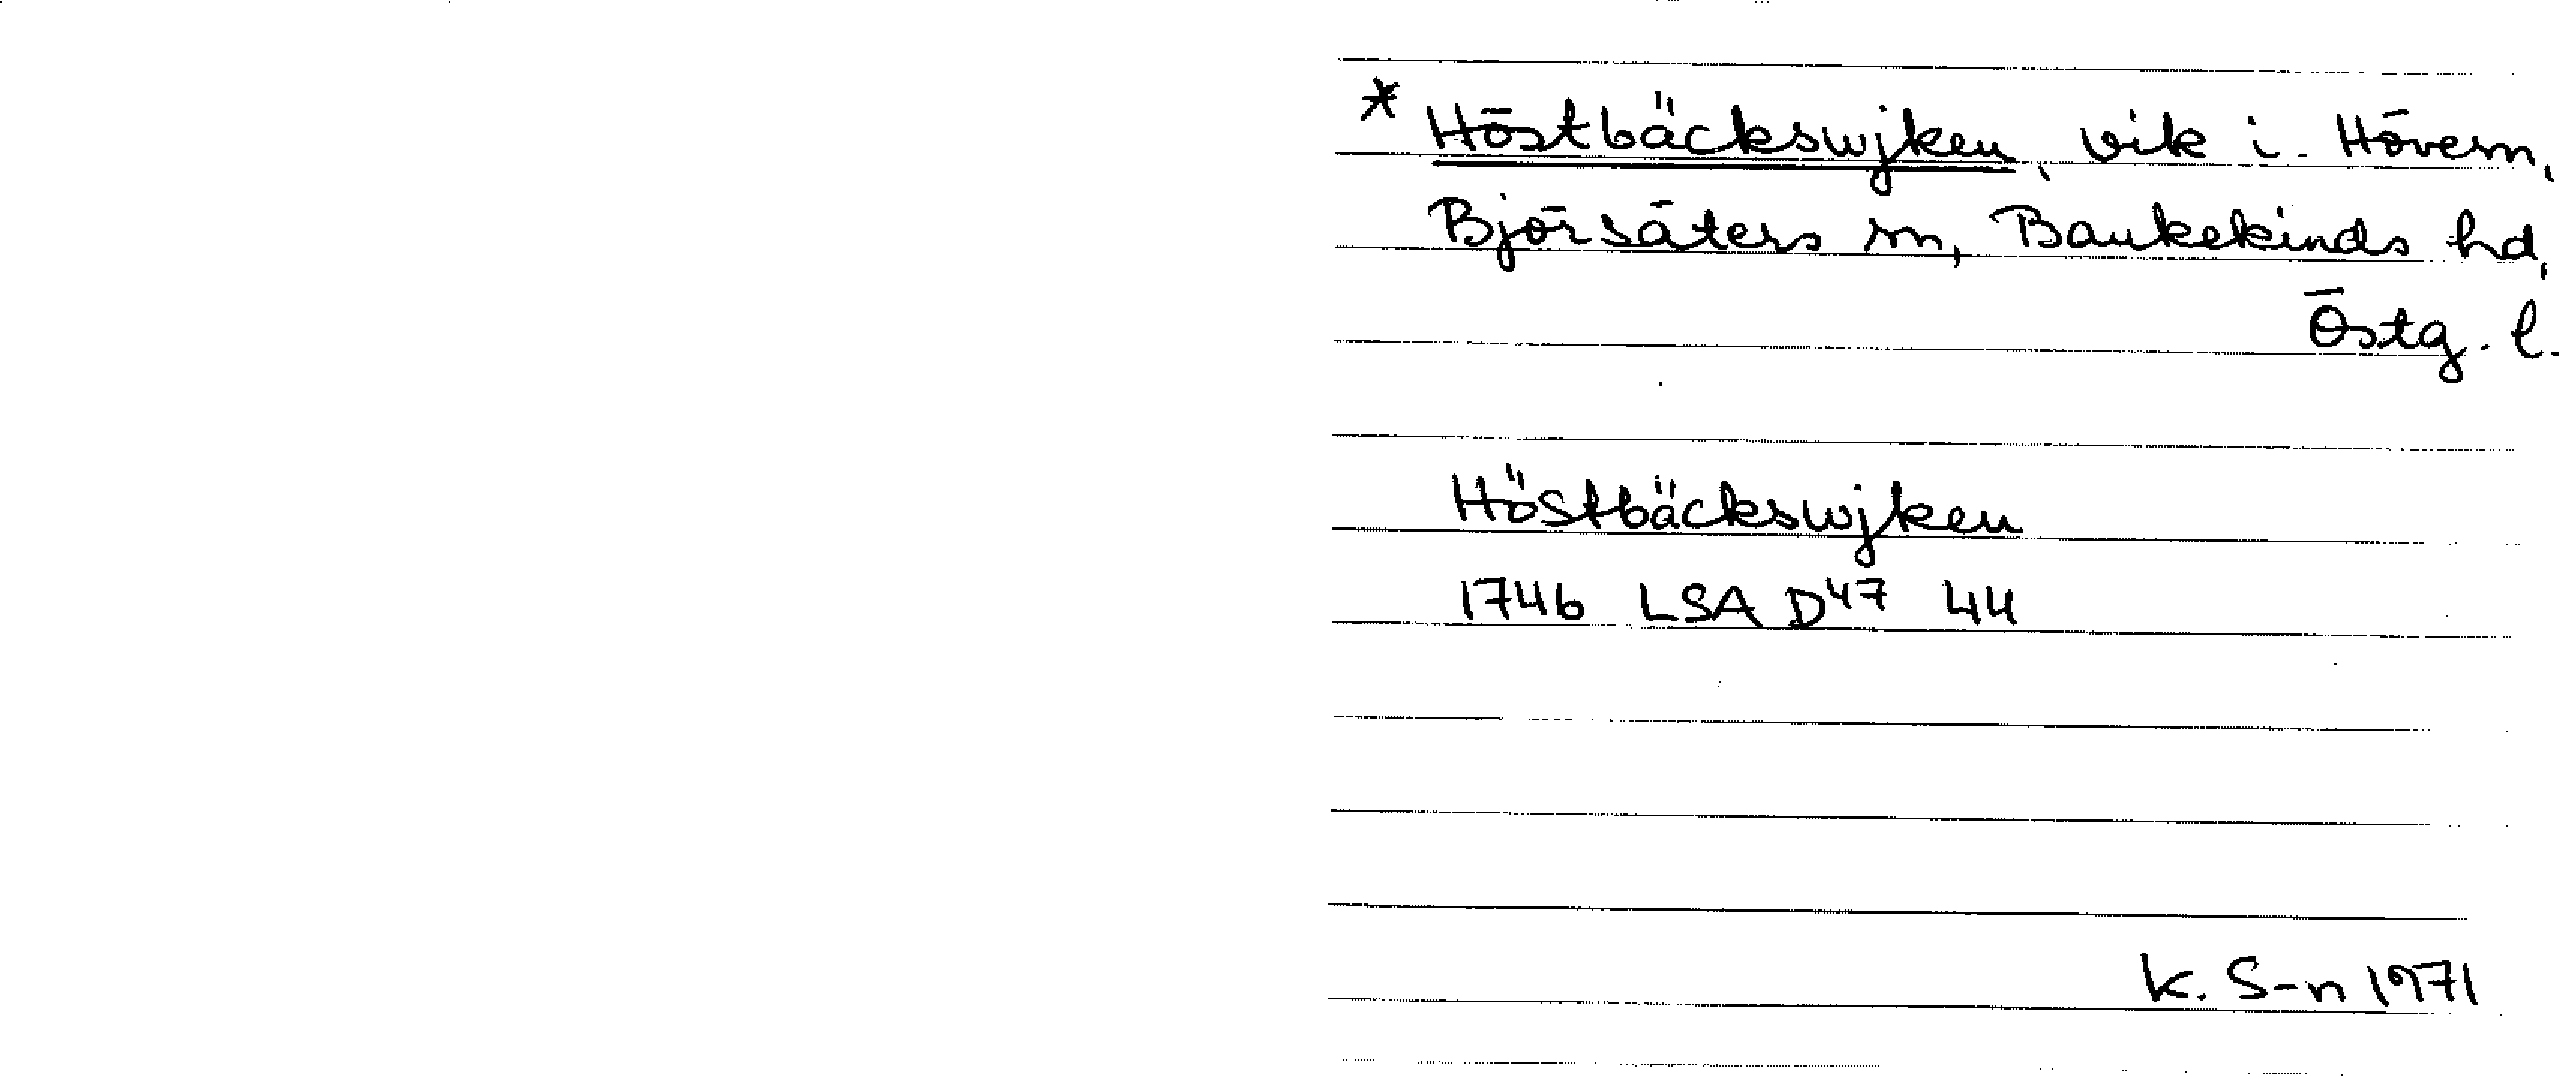 * Höstbäckswjken, vik i Hövern,
Björsäters sn, Bankekinds hd,
Östg. l.
Höstbäckswjken
1746 LSA D47 44
K. S-n 1971